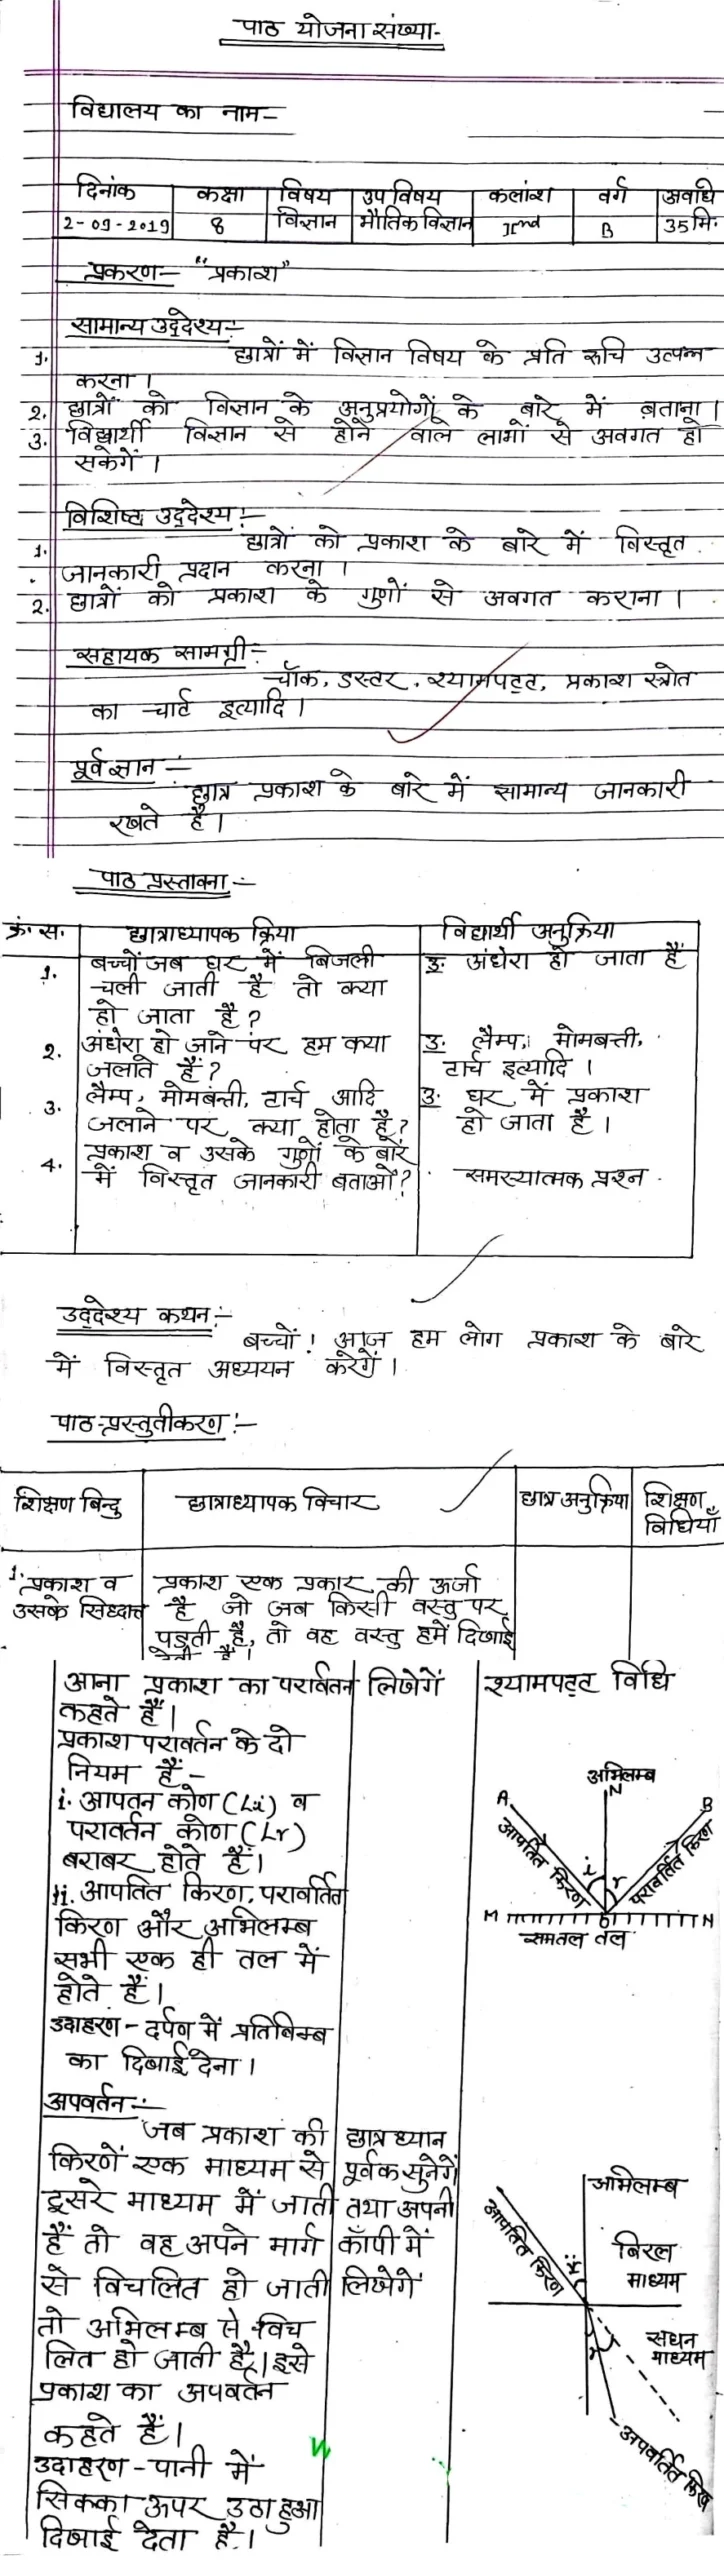 पाठ योजना संख्या-
विद्यालय का नाम-
दिनांक कक्षा विषय उपविषय कलांश वर्ग अवधि
2-09-2019 8 विज्ञान भौतिक विज्ञान IInd B 35 मि.
प्रकरण- "प्रकाश"
सामान्य उद्देश्य:-
1. छात्रों में विज्ञान विषय के प्रति रूचि उत्पन्न
करना।
2. छात्रों को विज्ञान के अनुप्रयोगों के बारे में बताना।
3. विद्यार्थी विज्ञान से होने वाले लाभों से अवगत हो
सकेगें।
विशिष्ट उद्देश्य:-
1. छात्रों को प्रकाश के बारे में विस्तृत
जानकारी प्रदान करना।
2. छात्रों को प्रकाश के गुणों से अवगत कराना।
सहायक सामग्री:-
चॉक, डस्टर, श्यामपट्ट, प्रकाश स्त्रोत
का चार्ट इत्यादि।
पूर्व ज्ञान:-
छात्र प्रकाश के बारे में सामान्य जानकारी
रखते हैं।
पाठ प्रस्तावना:-
क्रं.स. छात्राध्यापक क्रिया विद्यार्थी अनुक्रिया
1. बच्चों जब घर में बिजली उ. अंधेरा हो जाता हैं
चली जाती हैं तो क्या
हो जाता हैं?
2. अंधेरा हो जाने पर हम क्या उ. लैम्प, मोमबत्ती,
जलाते हैं? टार्च इत्यादि।
3. लैम्प, मोमबत्ती, टार्च आदि उ. घर में प्रकाश
जलाने पर क्या होता हैं? हो जाता हैं।
4. प्रकाश व उसके गुणों के बारे
में विस्तृत जानकारी बताओं? समस्यात्मक प्रश्न.
उद्देश्य कथन:-
बच्चों! आज हम लोग प्रकाश के बारे
में विस्तृत अध्ययन करेगें।
पाठ-प्रस्तुतीकरण:-
शिक्षण बिन्दु छात्राध्यापक विचार छात्र अनुक्रिया शिक्षण
विधियाँ
1. प्रकाश व प्रकाश एक प्रकार की ऊर्जा
उसके सिध्दान्त हैं जो जब किसी वस्तु पर
पड़ती हैं, तो वह वस्तु हमें दिखाई
आना प्रकाश का परार्वतन लिखेगें श्यामपट्ट विधि
कहते हैं।
प्रकाश परावर्तन के दो
नियम हैं-
i. आपतन कोण (∠i) व
परावर्तन कोण (∠r)
बराबर होते हैं।
ii. आपतित किरण, परावर्तित
किरण और अभिलम्ब
सभी एक ही तल में
होते हैं।
उदाहरण- दर्पण में प्रतिबिम्ब
का दिखाई देना।
अभिलम्ब
A N B
आपतित किरण i r परावर्तित किरण
M O N
समतल तल
अपवर्तन:-
जब प्रकाश की छात्र ध्यान
किरणें एक माध्यम से पूर्वक सुनेगें
दूसरे माध्यम में जाती तथा अपनी
हैं तो वह अपने मार्ग कॉपी में
से विचलित हो जाती लिखेगें
तो अभिलम्ब से विच
लित हो जाती हैं।इसे
प्रकाश का अपवर्तन
कहते हैं।
उदाहरण- पानी में
सिक्का ऊपर उठा हुआ
दिखाई देता हैं।
अभिलम्ब
आपतित किरण i बिरल
माध्यम
r सघन
माध्यम
अपवर्तित किरण